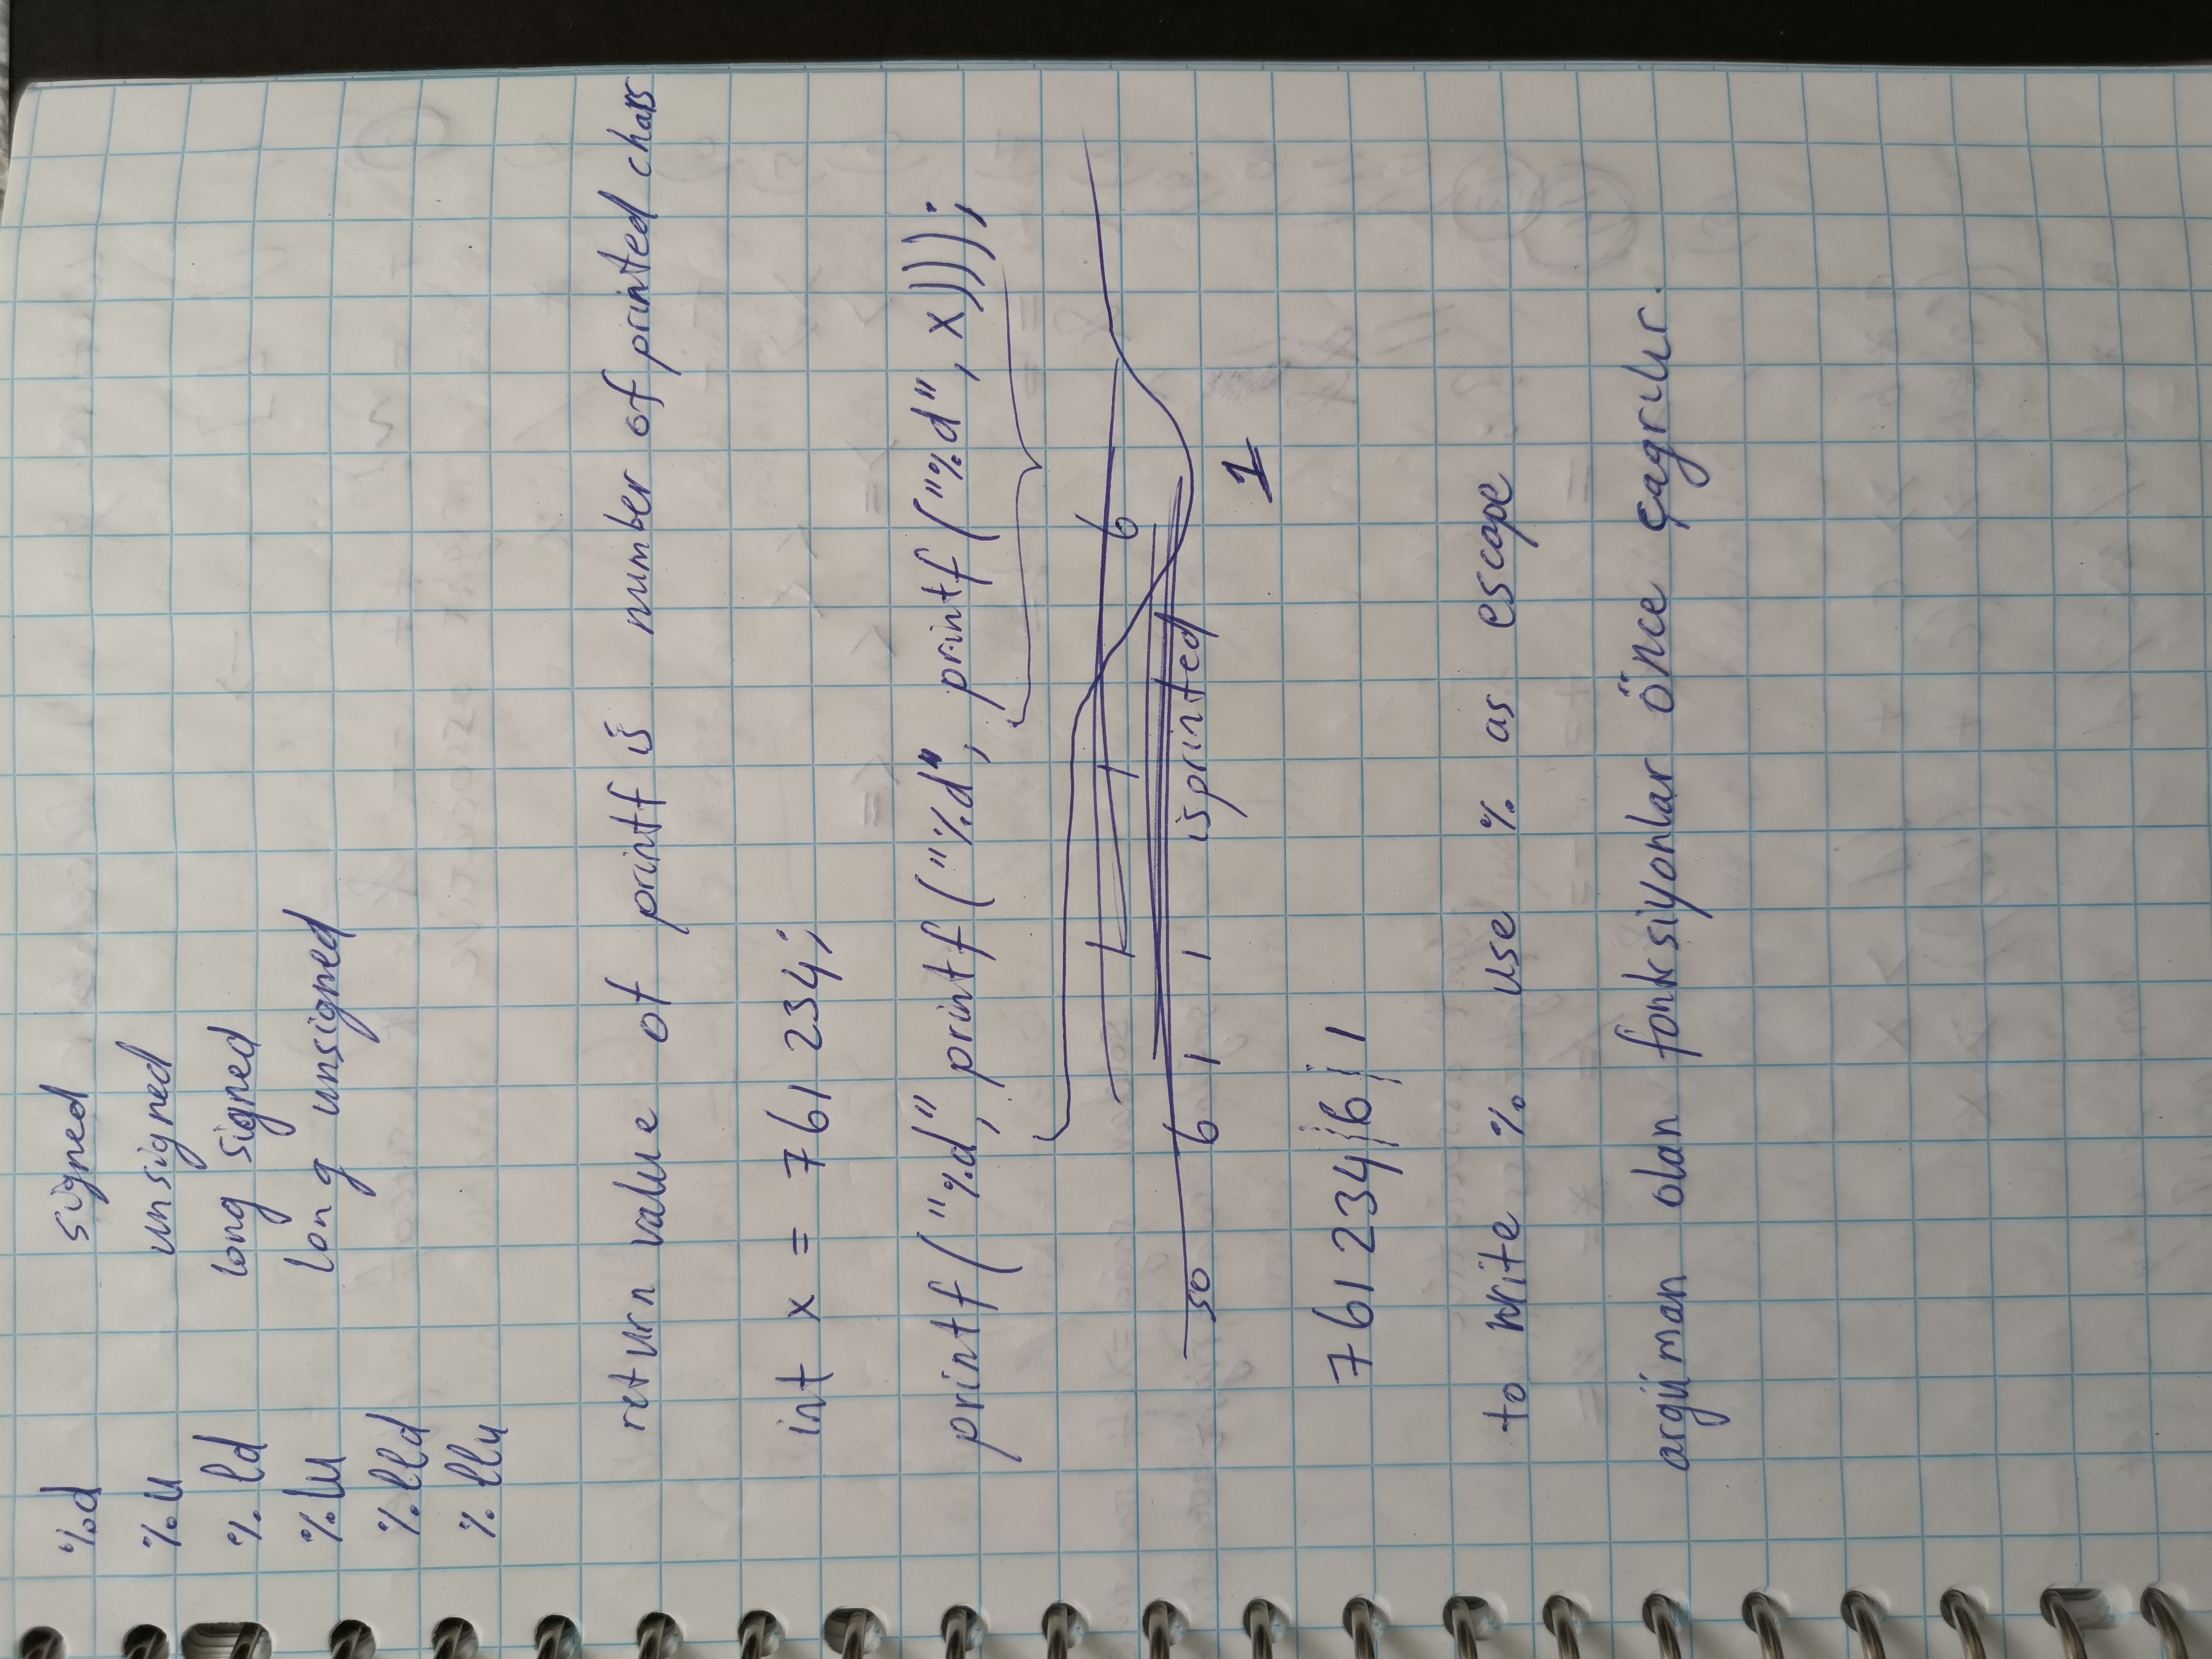 %d signed
%u unsigned
%ld long signed
%lu long unsigned
%lld
%llu
return value of printf is number of printed chars
int x = 761 234;
printf("%d", printf("%d", printf("%d", x)));
1 1 6
so 6 1 1 is printed
1
761 234 6 1
to write % use % as escape
argüman olan fonksiyonlar önce çagrılır.